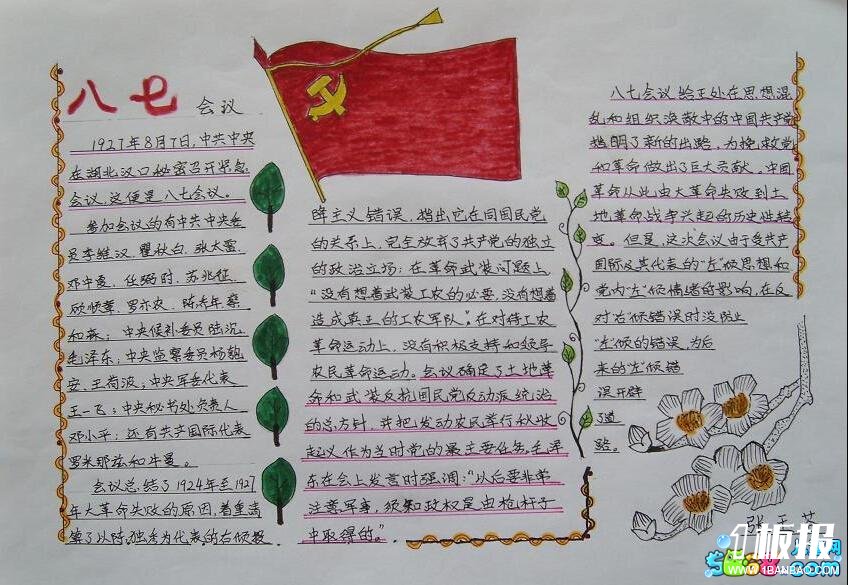 八七 会议
1927年8月7日,中共中央
在湖北汉口秘密召开紧急
会议,这便是八七会议。
参加会议的有中共中央委
员李维汉,瞿秋白,张太雷,
邓中夏,任弼时,苏兆征,
顾顺章,罗亦农,陈乔年,蔡
和森;中央候补委员陆沉,
毛泽东;中央监察委员杨匏
安,王荷波;中央军委代表
王一飞;中央秘书处负责人
邓小平;还有共产国际代表
罗米那兹和牛曼。
会议总结了1924年至1927
年大革命失败的原因,着重清
算了以陈独秀为代表的右倾投
降主义错误,指出它在同国民党
的关系上,完全放弃了共产党的独立
的政治立场;在革命武装问题上
“没有想着武装工农的必要,没有想着
造成真正的工农军队”。在对待工农
革命运动上,没有积极支持和领导
农民革命运动。会议确定了土地革
命和武装反抗国民党反动派统治
的总方针,并把发动农民举行秋收
起义作为当时党的最主要任务。毛泽
东在会上发言时强调:“以后要非常
注意军事,须知政权是由枪杆子
中取得的。”
八七会议给正处在思想混
乱和组织涣散中的中国共产党
指明了新的出路,为挽救党
和革命做出了巨大贡献。中国
革命从此由大革命失败到土
地革命战争兴起的历史性转
变。但是,这次会议由于受共产
国际及其代表的“左”倾思想和
党内“左”倾情绪的影响,在反
对右倾错误时没防止
“左”倾的错误,为后
来的“左”倾错
误开辟
了道
路。
板报
WWW.1BANBAO.COM